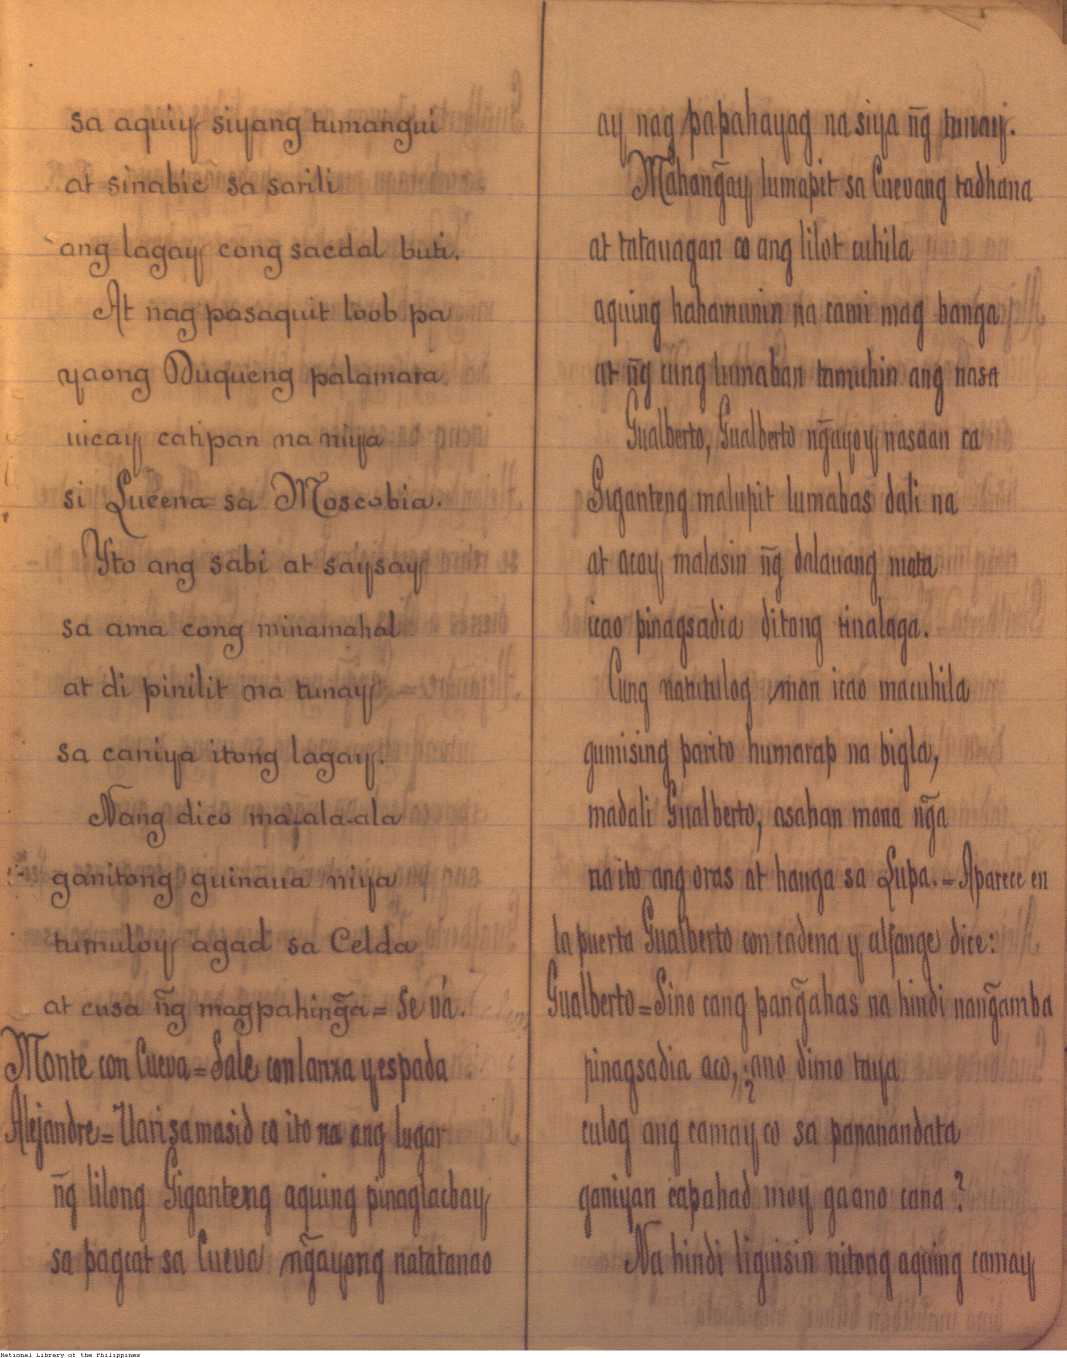 sa aquiy siyang tumangui
at sinabie sa sarili
ang lagay cong sacdal buti.
At nag pasaquit loob pa
yaong Duqueng palamara
uicay catipan na niya
si Lucena sa Moscobia.
Yto ang sabi at saysay
sa ama cong minamahal
at di pinilit na tunay
sa caniya itong lagay.
Nang dico maala-ala
ganitong guinaua niya
tumuloy agad sa Celda
at cusa ñg magpahing̃a = Se vá.
Monte con Cueva = Sale con lanza y espada
Alejandre = Uari sa masid co ito na ang lugar
ñg lilong Giganteng aquing pinaglacbay
sa pagcat sa Cueva ng̃ayong natatanao
ay nag papahayag na siya ñg tunay.
Mahang̃ay lumapit sa Cuevang tadhana
at tatauagan co ang lilot cuhila
aquing hahamunin na cami mag banga
at ñg cung lumaban tamuhin ang nasa
Gualberto, Gualberto ng̃ayoy nasaan ca
Giganteng malupit lumabas dali na
at acay malasin ñg dalauang mata
icao pinagsadia ditong tinalaga.
Cung natutulog man icao macuhila
gumising parito humarap na bigla,
madali Gualberto, asahan mona ng̃a
na ito ang oras at hanga sa Lupa. = Aparece en
la puerta Gualberto con cadena y alfange dice:
Gualberto = Sino cang pang̃ahas na hindi nang̃amba
pinagsadia aco, ¿ano dimo taya
culog ang camay co sa pananandata
ganiyan capahad moy gaano cana?
Na hindi liguisin nitong aquing camay
National Library of the Philippines